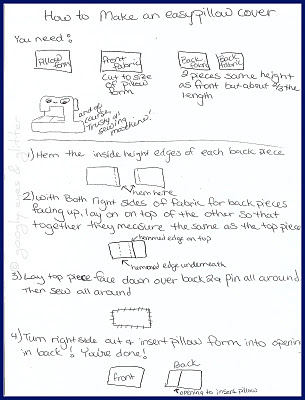 How to Make an easy pillow cover
You need:
Pillow
form
Front
fabric
cut to size
of pillow
form
Back
fabric
Back
fabric
2 pieces same height
as front but about 2/3 the
length
and of
course,
Trusty ol
sewing machine!
1) Hem the inside height edges of each back piece
hem here
2) with Both right sides of fabric for back pieces
facing up, lay on on top of the other so that
together they measure the same as the top piece
hemmed edge on top
hemmed edge underneath
3) Lay top piece face down over back 2 & pin all around
then sew all around
4) Turn right side out & insert pillow form into opening
in back! You're done!
front
Back
opening to insert pillow
© googly eyes & glitter